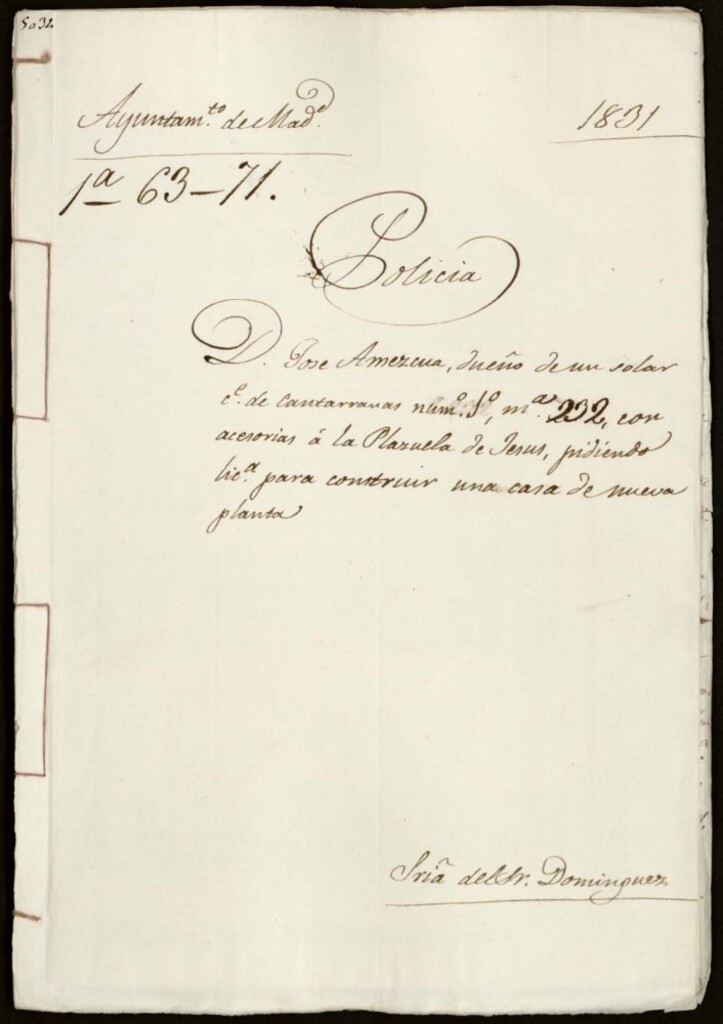 5032
Ayuntam.to de Mad.d
1831
1.a 63-71.
Policia
D. Jose Amezcua, dueño de un solar
c.e de Cantarranas num.o 1.o, m.a 232, con
acesorias á la Plazuela de Jesus, pidiendo
lic.a para construir una casa de nueva
planta
Sria del Sr. Dominguez